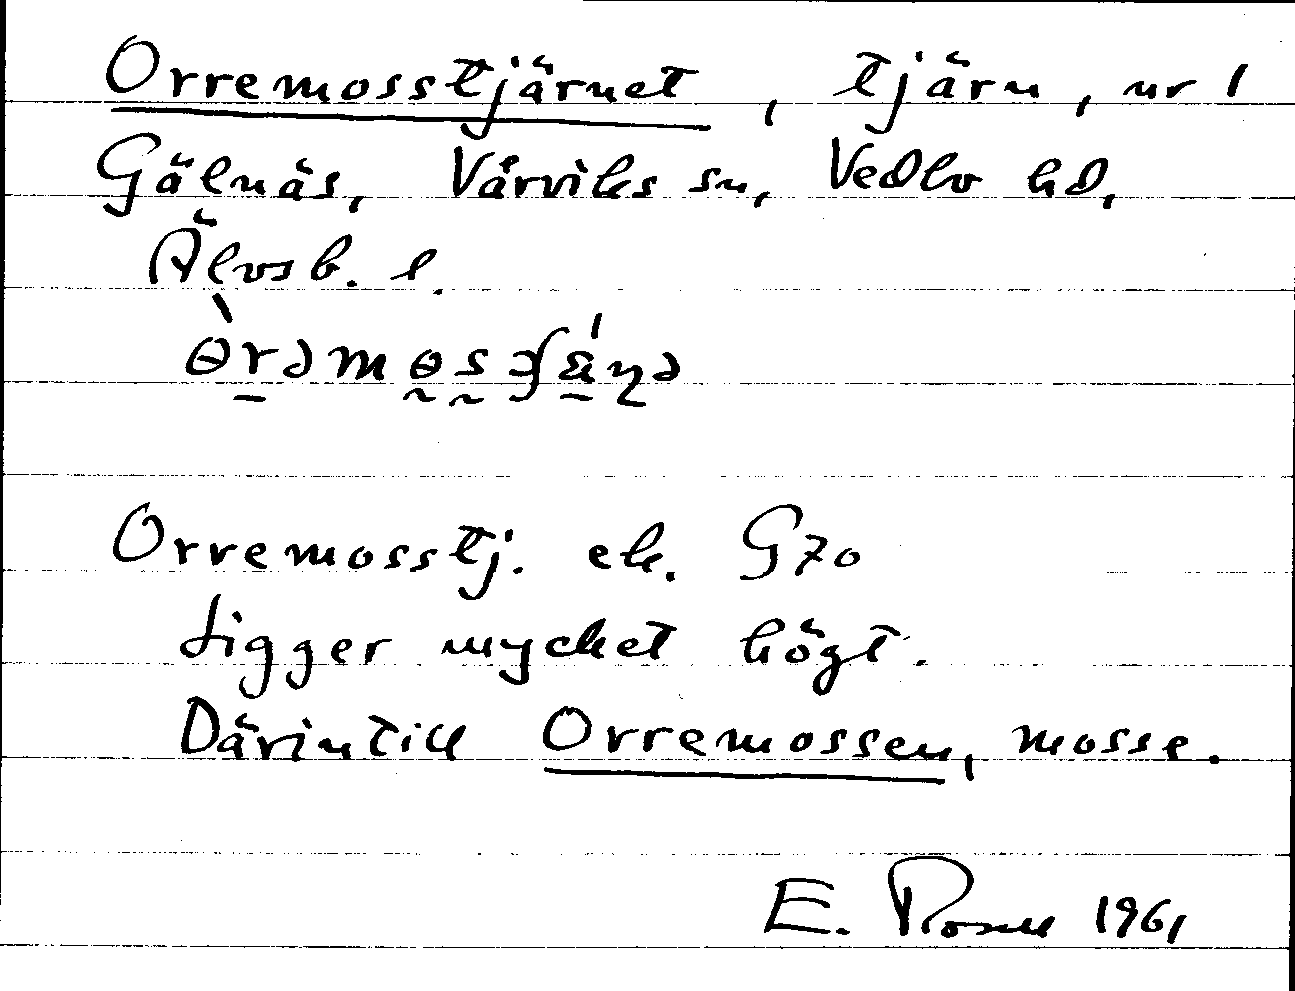 Orremosstjärnet, tjärn, nr 1
Gälnäs, Vårviks sn, Vedbo hd,
Älvsb. l.
Orremosstj. ek. G70
Ligger mycket högt.
Därintill Orremossen, mosse.
E. Rosell 1961